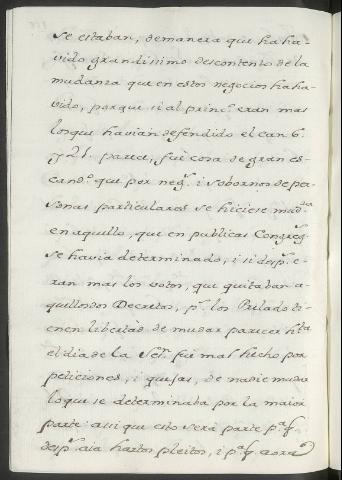 se estaban, de manera que ha ha-
vido grandissimo descontento de la
mudanza que en estos negocios ha ha-
vido, porque si al princ.º eran mas
los que havian defendido el can. 6.
y 21. parece, fue cosa de gran es-
cand.º que por neg.s i sobornos de per-
sonas particulares se hiciese mud.za
en aquello, que en publicas Congreg.s
se havia determinado, i si desp.s e-
ran mas los votos, que quitaban a-
quellos dos Decretos, p.s los Prelados ti-
enen libertad de mudar parecer h.ta
el dia de la Ses.n fue mal hecho por
peticiones, i quejas, de nadie mudar
lo que se determinaba por la maior
parte: asi que esto será parte p.a q.
desp.s aia hartos pleitos, i p.a q. aora